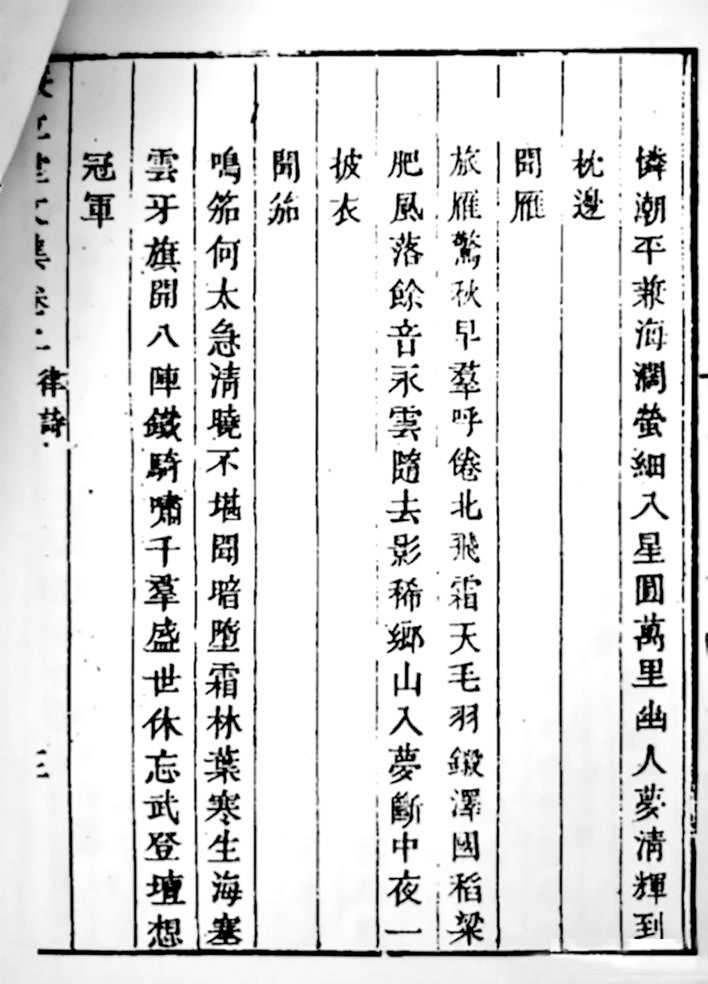 憐潮平兼海濶螢細入星圓萬里幽人夢清輝到
枕邊
聞雁
旅雁驚秋早羣呼倦北飛霜天毛羽鎩澤國稻粱
肥風落餘音永雲隨去影稀鄉山入夢斷中夜一
披衣
聞笳
鳴笳何太急清曉不堪聞暗墮霜林葉寒生海塞
雲牙旗開八陣鐵騎嘯千羣盛世休忘武登壇想
冠軍
文集卷
律詩
三